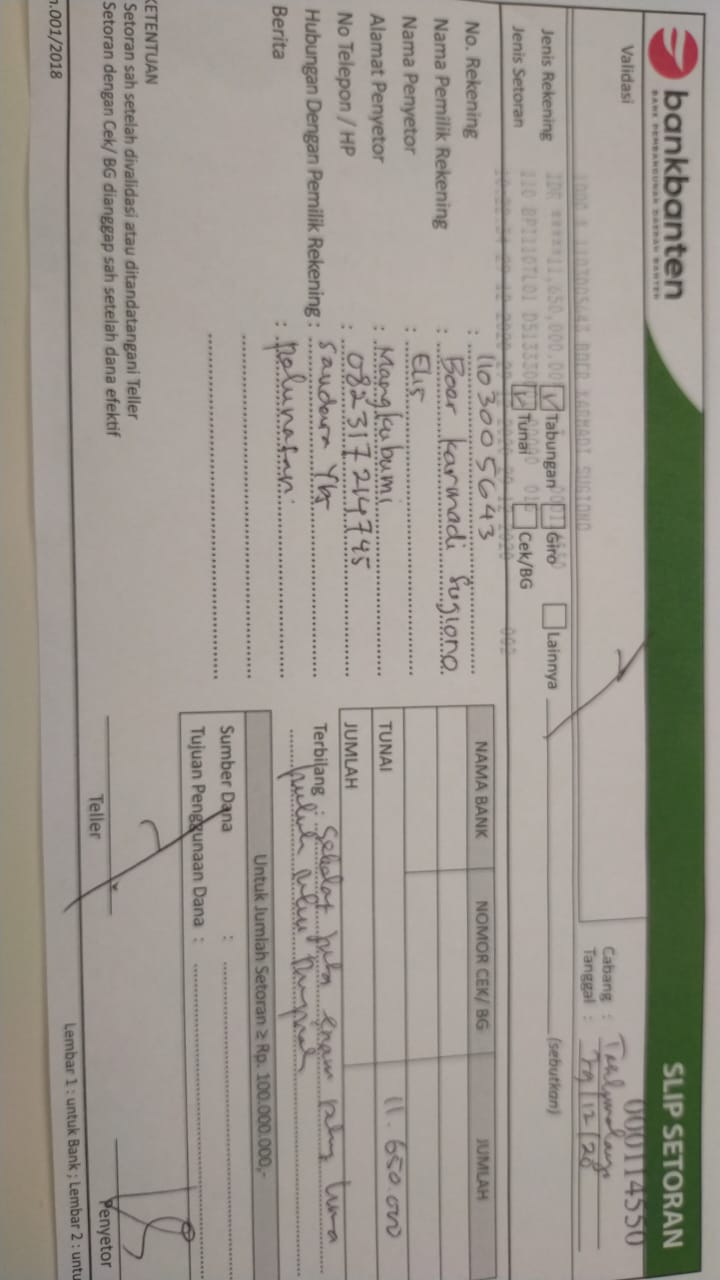 bankbanten
BANK PEMBANGUNAN DAERAH BANTEN
SLIP SETORAN
000114550
Validasi
Cabang :
Tanggal : 29/12/20
1103005643 BOER KARMADI SUGIONO
IDR ******11,650,000.00
Jenis Rekening
Tabungan Giro Lainnya (sebutkan)
Jenis Setoran
Tunai Cek/BG
No. Rekening : 1103005643
Nama Pemilik Rekening : Boer karmadi Sugiono.
Nama Penyetor : Elis
Alamat Penyetor : Mangkubumi
No Telepon / HP : 082317214745
Hubungan Dengan Pemilik Rekening : Saudara
Berita : pelunasan.
NAMA BANK NOMOR CEK/ BG JUMLAH
TUNAI 11.650.000
JUMLAH
Terbilang : Sebelas juta enam lima
puluh ribu rupiah
Untuk Jumlah Setoran ≥ Rp. 100.000.000,-
Sumber Dana :
Tujuan Penggunaan Dana :
KETENTUAN
Setoran sah setelah divalidasi atau ditandatangani Teller
Setoran dengan Cek/ BG dianggap sah setelah dana efektif
Teller
Penyetor
.001/2018
Lembar 1 : untuk Bank ; Lembar 2 : untu